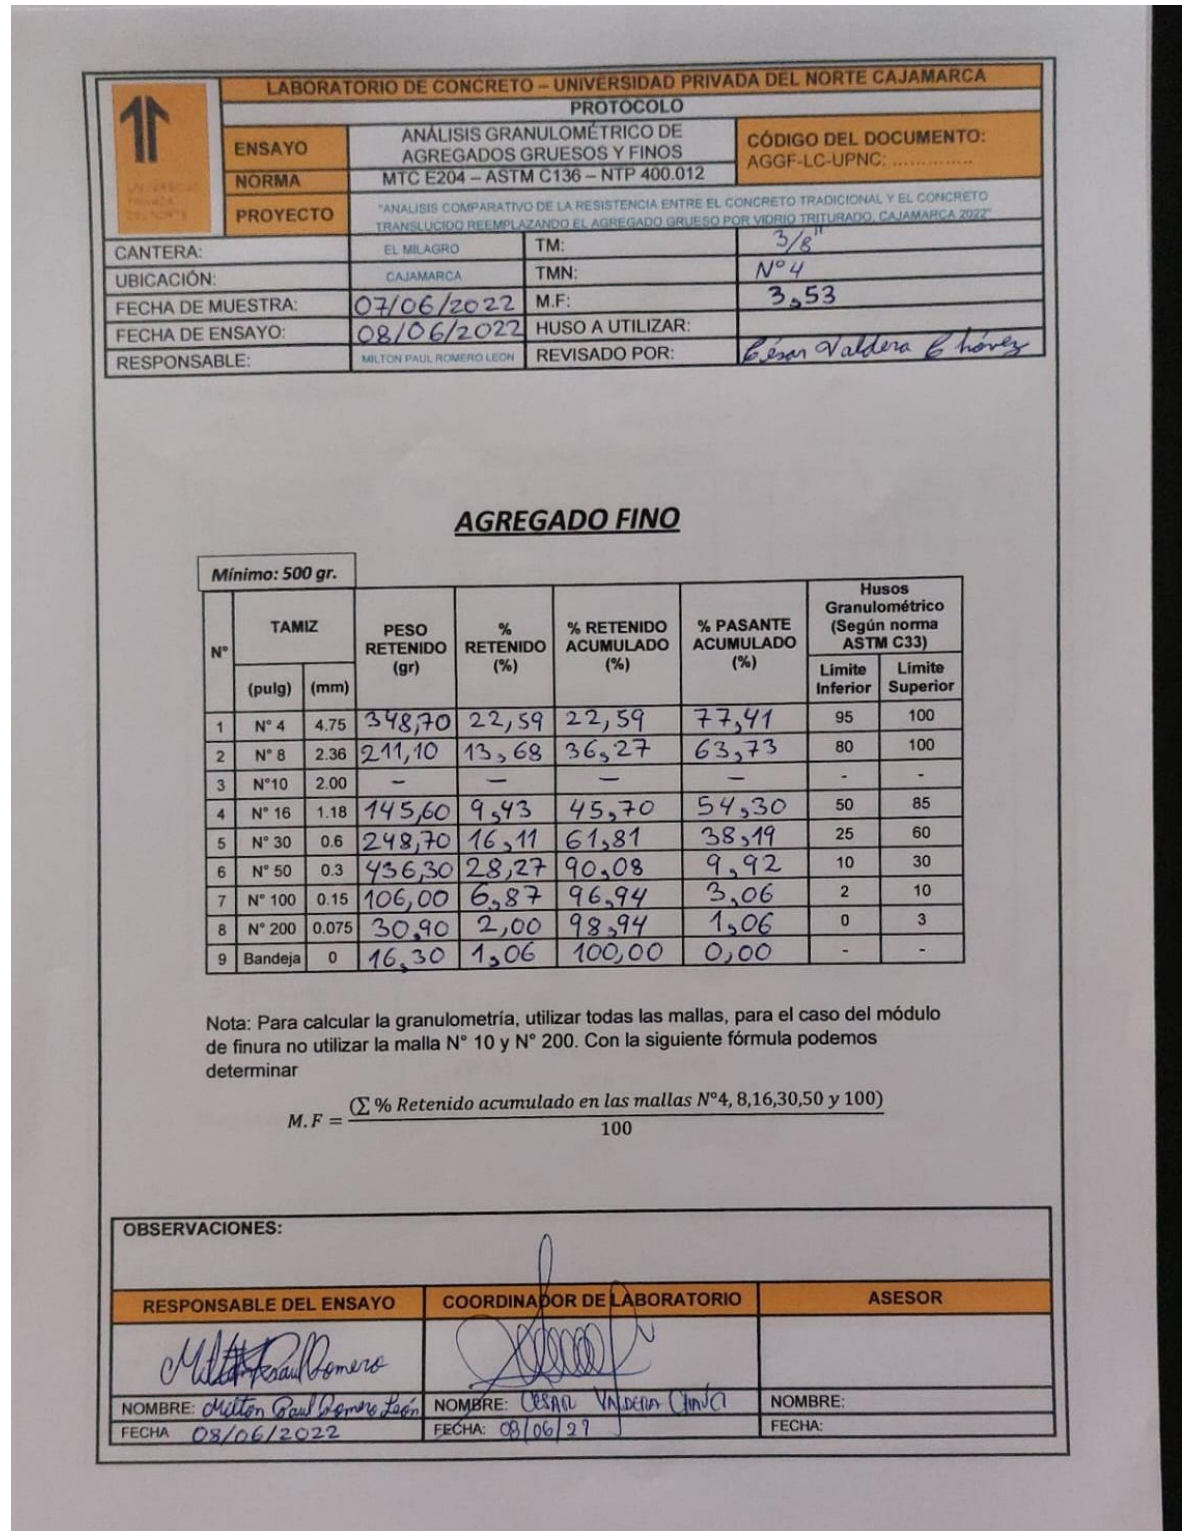 LABORATORIO DE CONCRETO – UNIVERSIDAD PRIVADA DEL NORTE CAJAMARCA
PROTOCOLO
UNIVERSIDAD
PRIVADA
DEL NORTE
ENSAYO
ANÁLISIS GRANULOMÉTRICO DE
AGREGADOS GRUESOS Y FINOS
CÓDIGO DEL DOCUMENTO:
AGGF-LC-UPNC: ...............
NORMA
MTC E204 – ASTM C136 – NTP 400.012
PROYECTO
"ANALISIS COMPARATIVO DE LA RESISTENCIA ENTRE EL CONCRETO TRADICIONAL Y EL CONCRETO
TRANSLUCIDO REEMPLAZANDO EL AGREGADO GRUESO POR VIDRIO TRITURADO, CAJAMARCA 2022"
CANTERA: EL MILAGRO TM: 3/8"
UBICACIÓN: CAJAMARCA TMN: N°4
FECHA DE MUESTRA: 07/06/2022 M.F: 3,53
FECHA DE ENSAYO: 08/06/2022 HUSO A UTILIZAR:
RESPONSABLE: MILTON PAUL ROMERO LEON REVISADO POR: César Valdera Chávez
AGREGADO FINO
Mínimo: 500 gr.
N° TAMIZ PESO RETENIDO (gr) % RETENIDO (%) % RETENIDO ACUMULADO (%) % PASANTE ACUMULADO (%) Husos Granulométrico (Según norma ASTM C33)
(pulg) (mm) Límite Inferior Límite Superior
1 N° 4 4.75 348,70 22,59 22,59 77,41 95 100
2 N° 8 2.36 211,10 13,68 36,27 63,73 80 100
3 N°10 2.00 – – – – - -
4 N° 16 1.18 145,60 9,43 45,70 54,30 50 85
5 N° 30 0.6 248,70 16,11 61,81 38,19 25 60
6 N° 50 0.3 436,30 28,27 90,08 9,92 10 30
7 N° 100 0.15 106,00 6,87 96,94 3,06 2 10
8 N° 200 0.075 30,90 2,00 98,94 1,06 0 3
9 Bandeja 0 16,30 1,06 100,00 0,00 - -
Nota: Para calcular la granulometría, utilizar todas las mallas, para el caso del módulo
de finura no utilizar la malla N° 10 y N° 200. Con la siguiente fórmula podemos
determinar
M.F = (∑ % Retenido acumulado en las mallas N°4, 8,16,30,50 y 100)
100
OBSERVACIONES:
RESPONSABLE DEL ENSAYO COORDINADOR DE LABORATORIO ASESOR
NOMBRE: Milton Paul Romero León NOMBRE: CESAR VALDERA NOMBRE:
FECHA 08/06/2022 FECHA: FECHA: